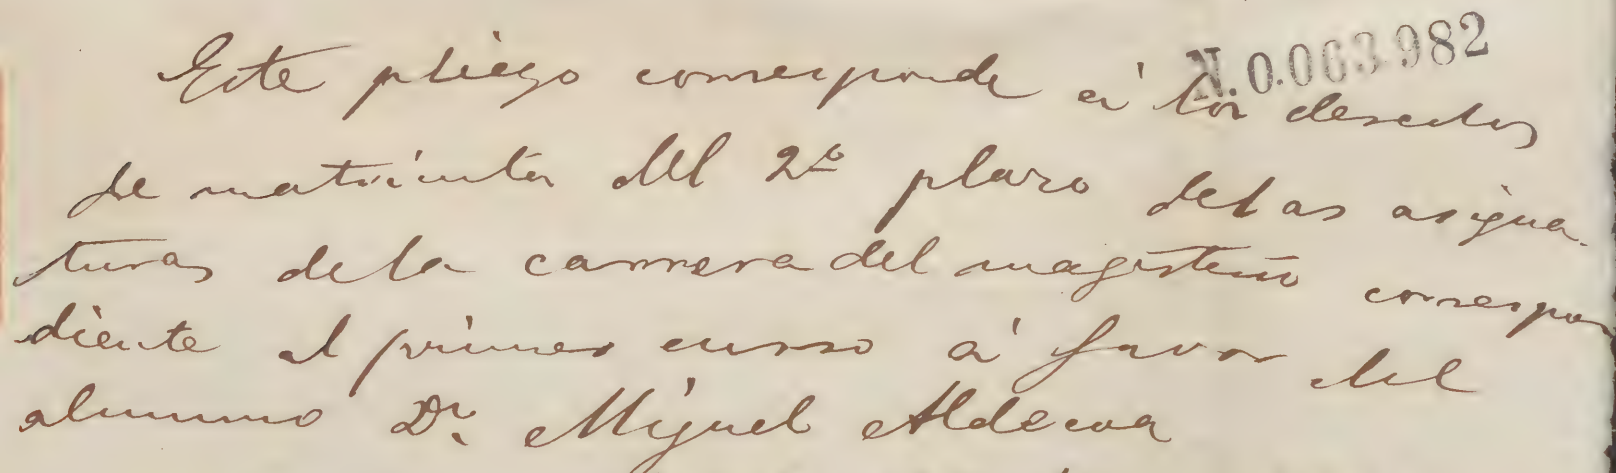 N.0.063.982
Este pliego corresponde á los derechos
de matrícula del 2º plazo de las asigna-
turas de la carrera del magisterio correspon
diente al primer curso á favor del
alumno Dn. Miguel Aldecoa